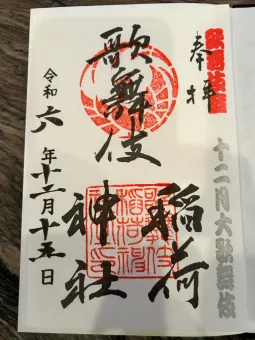 歌舞伎座
奉拝
十二月大歌舞伎
歌舞伎
稲荷
神社
令和六年十二月十五日